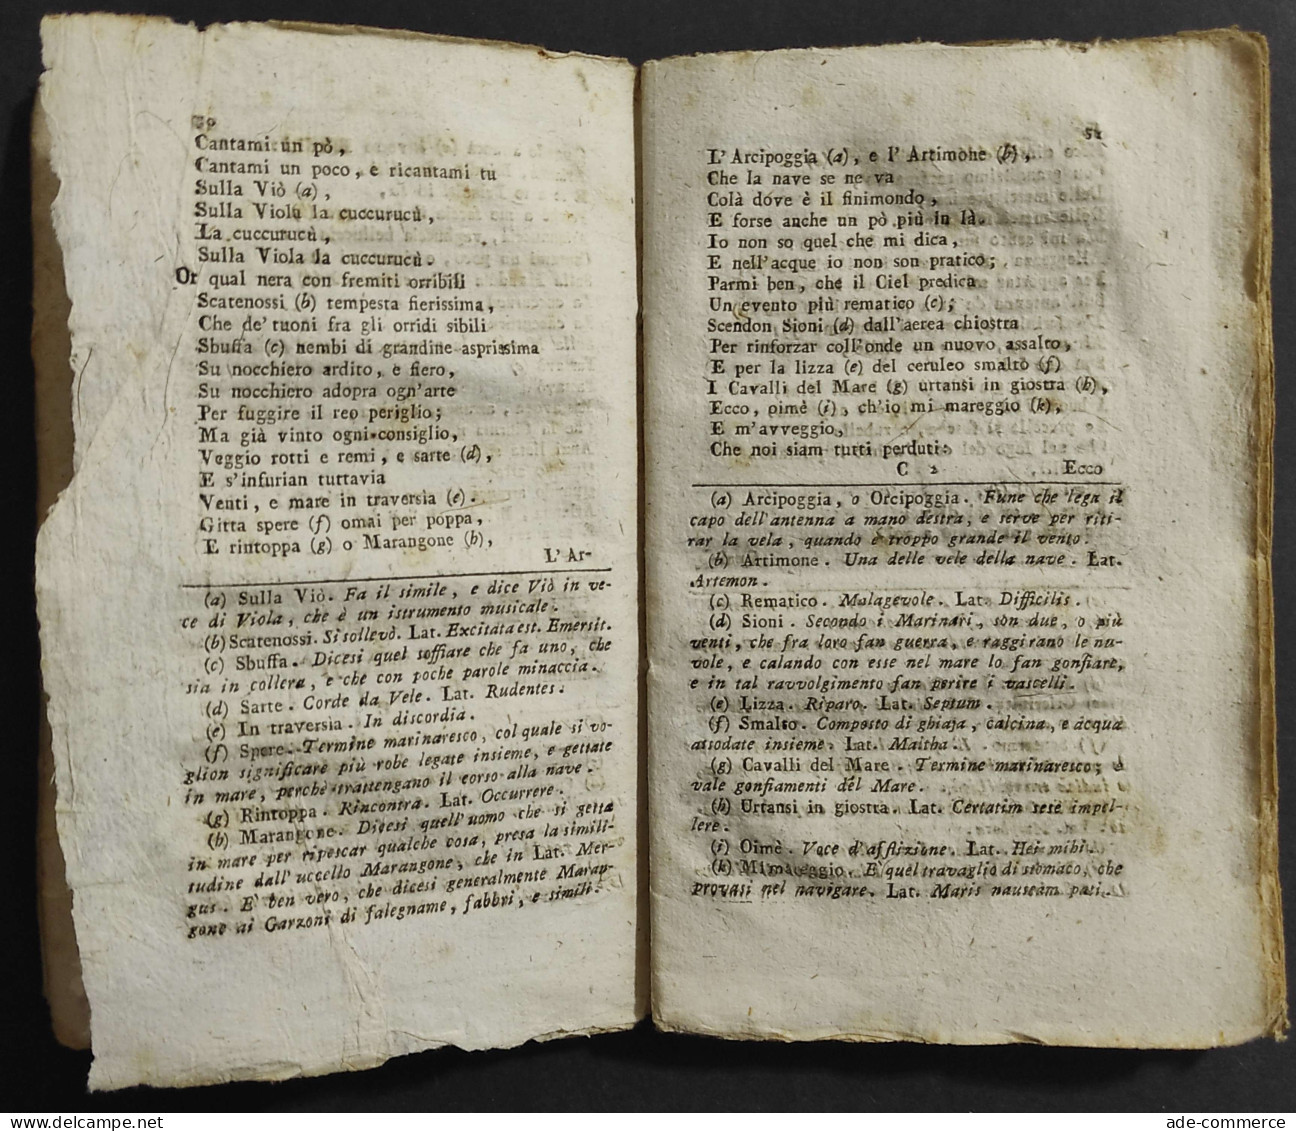 Cantami un pò,
Cantami un poco, e ricantami tu
Sulla Viò (a),
Sulla Viola la cuccurucù,
La cuccurucù,
Sulla Viola la cuccurucù.
Or qual nera con fremiti orribili
Scatenossi (b) tempesta fierissima,
Che de' tuoni fra gli orridi sibili
Sbuffa (c) nembi di grandine asprissima
Su nocchiero ardito, e fiero,
Su nocchiero adopra ogn'arte
Per fuggire il reo periglio;
Ma già vinto ogni consiglio,
Veggio rotti e remi, e sarte (d),
E s'infurian tuttavia
Venti, e mare in traversia (e).
Gitta spere (f) omai per poppa,
E rintoppa (g) o Marangone (h),
L' Ar-
(a) Sulla Viò. Fa il simile, e dice Viò in ve-
ce di Viola, che è un istrumento musicale.
(b) Scatenossi. Si sollevò. Lat. Excitata est. Emersit.
(c) Sbuffa. Dicesi quel soffiare che fa uno, che
sia in collera, e che con poche parole minaccia.
(d) Sarte. Corde da Vele. Lat. Rudentes.
(e) In traversia. In discordia.
(f) Spere. Termine marinaresco, col quale si vo-
glion significare più robe legate insieme, e gettate
in mare, perchè trattengano il corso alla nave.
(g) Rintoppa. Rincontra. Lat. Occurrere.
(h) Marangone. Dicesi quell'uomo che si getta
in mare per ripescar qualche cosa, presa la simili-
tudine dall'uccello Marangone, che in Lat. Mer-
gus. E' ben vero, che dicesi generalmente Maran-
gone ai Garzoni di falegname, fabbri, e simili.
L' Arcipoggia (a), e l' Artimone (b),
Che la nave se ne va
Colà dove è il finimondo,
E forse anche un pò più in là.
Io non so quel che mi dica,
E nell'acque io non son pratico;
Parmi ben, che il Ciel predica
Un evento più rematico (c);
Scendon Sioni (d) dall'aerea chiostra
Per rinforzar coll'onde un nuovo assalto,
E per la lizza (e) del ceruleo smalto (f)
I Cavalli del Mare (g) urtansi in giostra (h),
Ecco, oimè (i), ch'io mi mareggio (k),
E m'avveggio,
Che noi siam tutti perduti:
C 2 Ecco
(a) Arcipoggia, o Orcipoggia. Fune che lega il
capo dell'antenna a mano destra, e serve per riti-
rar la vela, quando è troppo grande il vento.
(b) Artimone. Una delle vele della nave. Lat.
Artemon.
(c) Rematico. Malagevole. Lat. Difficilis.
(d) Sioni. Secondo i Marinari, son due, o più
venti, che fra loro fan guerra, e raggirano le nu-
vole, e calando con esse nel mare lo fan gonfiare,
e in tal ravvolgimento fan perire i vascelli.
(e) Lizza. Riparo. Lat. Septum.
(f) Smalto. Composto di ghiaja, calcina, e acqua
assodate insieme. Lat. Maltha.
(g) Cavalli del Mare. Termine marinaresco; e
vale gonfiamenti del Mare.
(h) Urtansi in giostra. Lat. Certatim sese impel-
lere.
(i) Oimè. Voce d'afflizione. Lat. Hei mihi.
(k) Mi mareggio. E quel travaglio di stomaco, che
provasi nel navigare. Lat. Maris nauseam pati.
ade-commerce